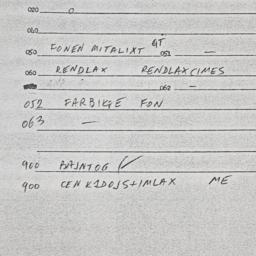 020 0
040
050 FONEN MITALIXT GT 051 —
060 RENDLAX RENDLAXCIMES
062 —
052 FARBIKE FON
063 —
900 BAJNTOG
900 CEN K1DOJS+IMLAX ME